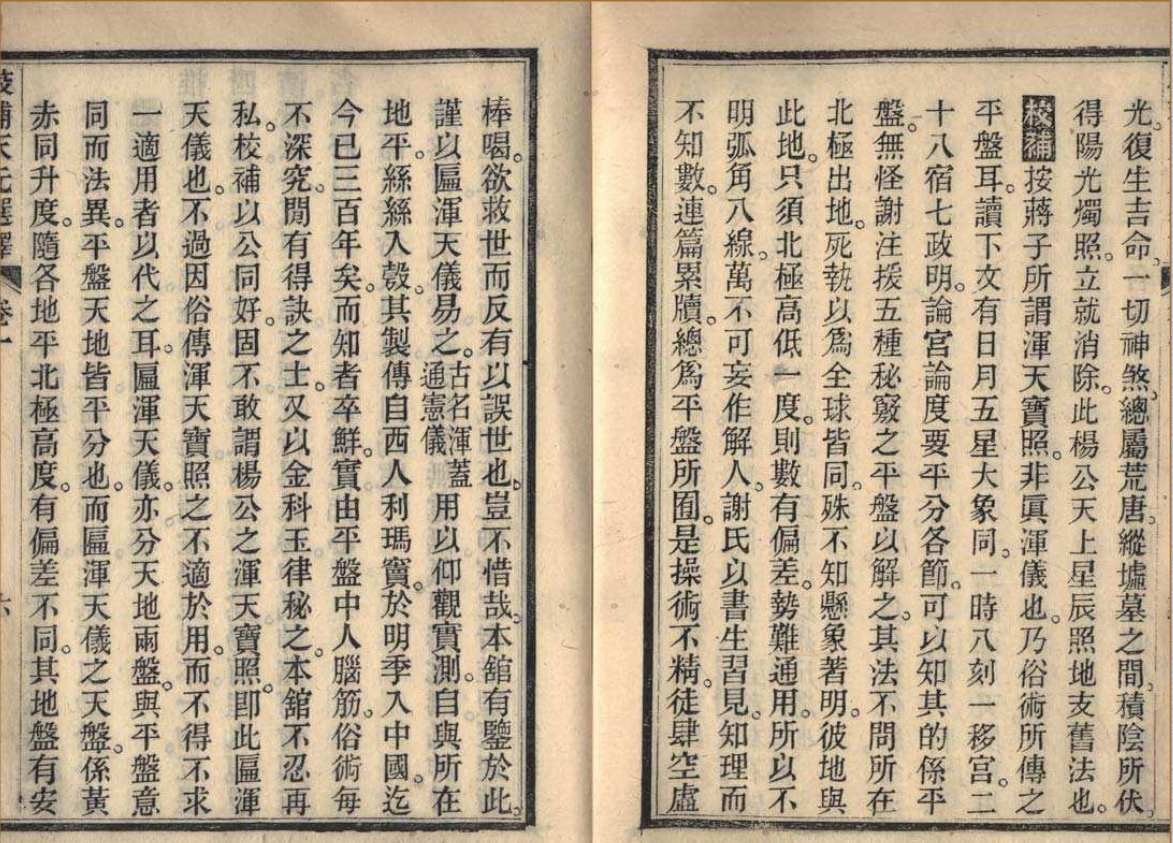 光。復生吉命。一切神煞。總屬荒唐。縱墟墓之間。積陰所伏。
得陽光燭照。立就消除。此楊公天上星辰照地支舊法也。
校補按蔣子所謂渾天寶照。非眞渾儀也。乃俗術所傳之
平盤耳。讀下文有日月五星大象同。一時八刻一移宮。二
十八宿七政明。論宮論度要平分各節。可以知其的係平
盤。無怪謝注援五種秘竅之平盤以解之。其法不問所在
北極出地。死執以爲全球皆同。殊不知懸象著明。彼地與
此地。只須北極高低一度。則數有偏差。勢難通用。所以不
明弧角八線。萬不可妄作解人。謝氏以書生習見。知理而
不知數。連篇累牘。總爲平盤所囿。是操術不精。徒肆空虛
棒喝。欲救世而反有以誤世也。豈不惜哉。本舘有鑒於此。
謹以匾渾天儀易之。古名渾蓋通憲儀用以仰觀實測。自與所在
地平。絲絲入彀。其製傳自西人利瑪竇。於明季入中國。迄
今已三百年矣。而知者卒鮮。實由平盤中人腦筋。俗術每
不深究。閒有得訣之士。又以金科玉律秘之。本舘不忍再
私。校補以公同好。固不敢謂楊公之渾天寶照。卽此匾渾
天儀也。不過因俗傳渾天寶照之不適於用。而不得不求
一適用者以代之耳。匾渾天儀。亦分天地兩盤。與平盤意
同而法異。平盤天地皆平分也。而匾渾天儀之天盤。係黃
赤同升度。隨各地平北極高度。有偏差不同。其地盤有安
校補天元選擇 卷一 六